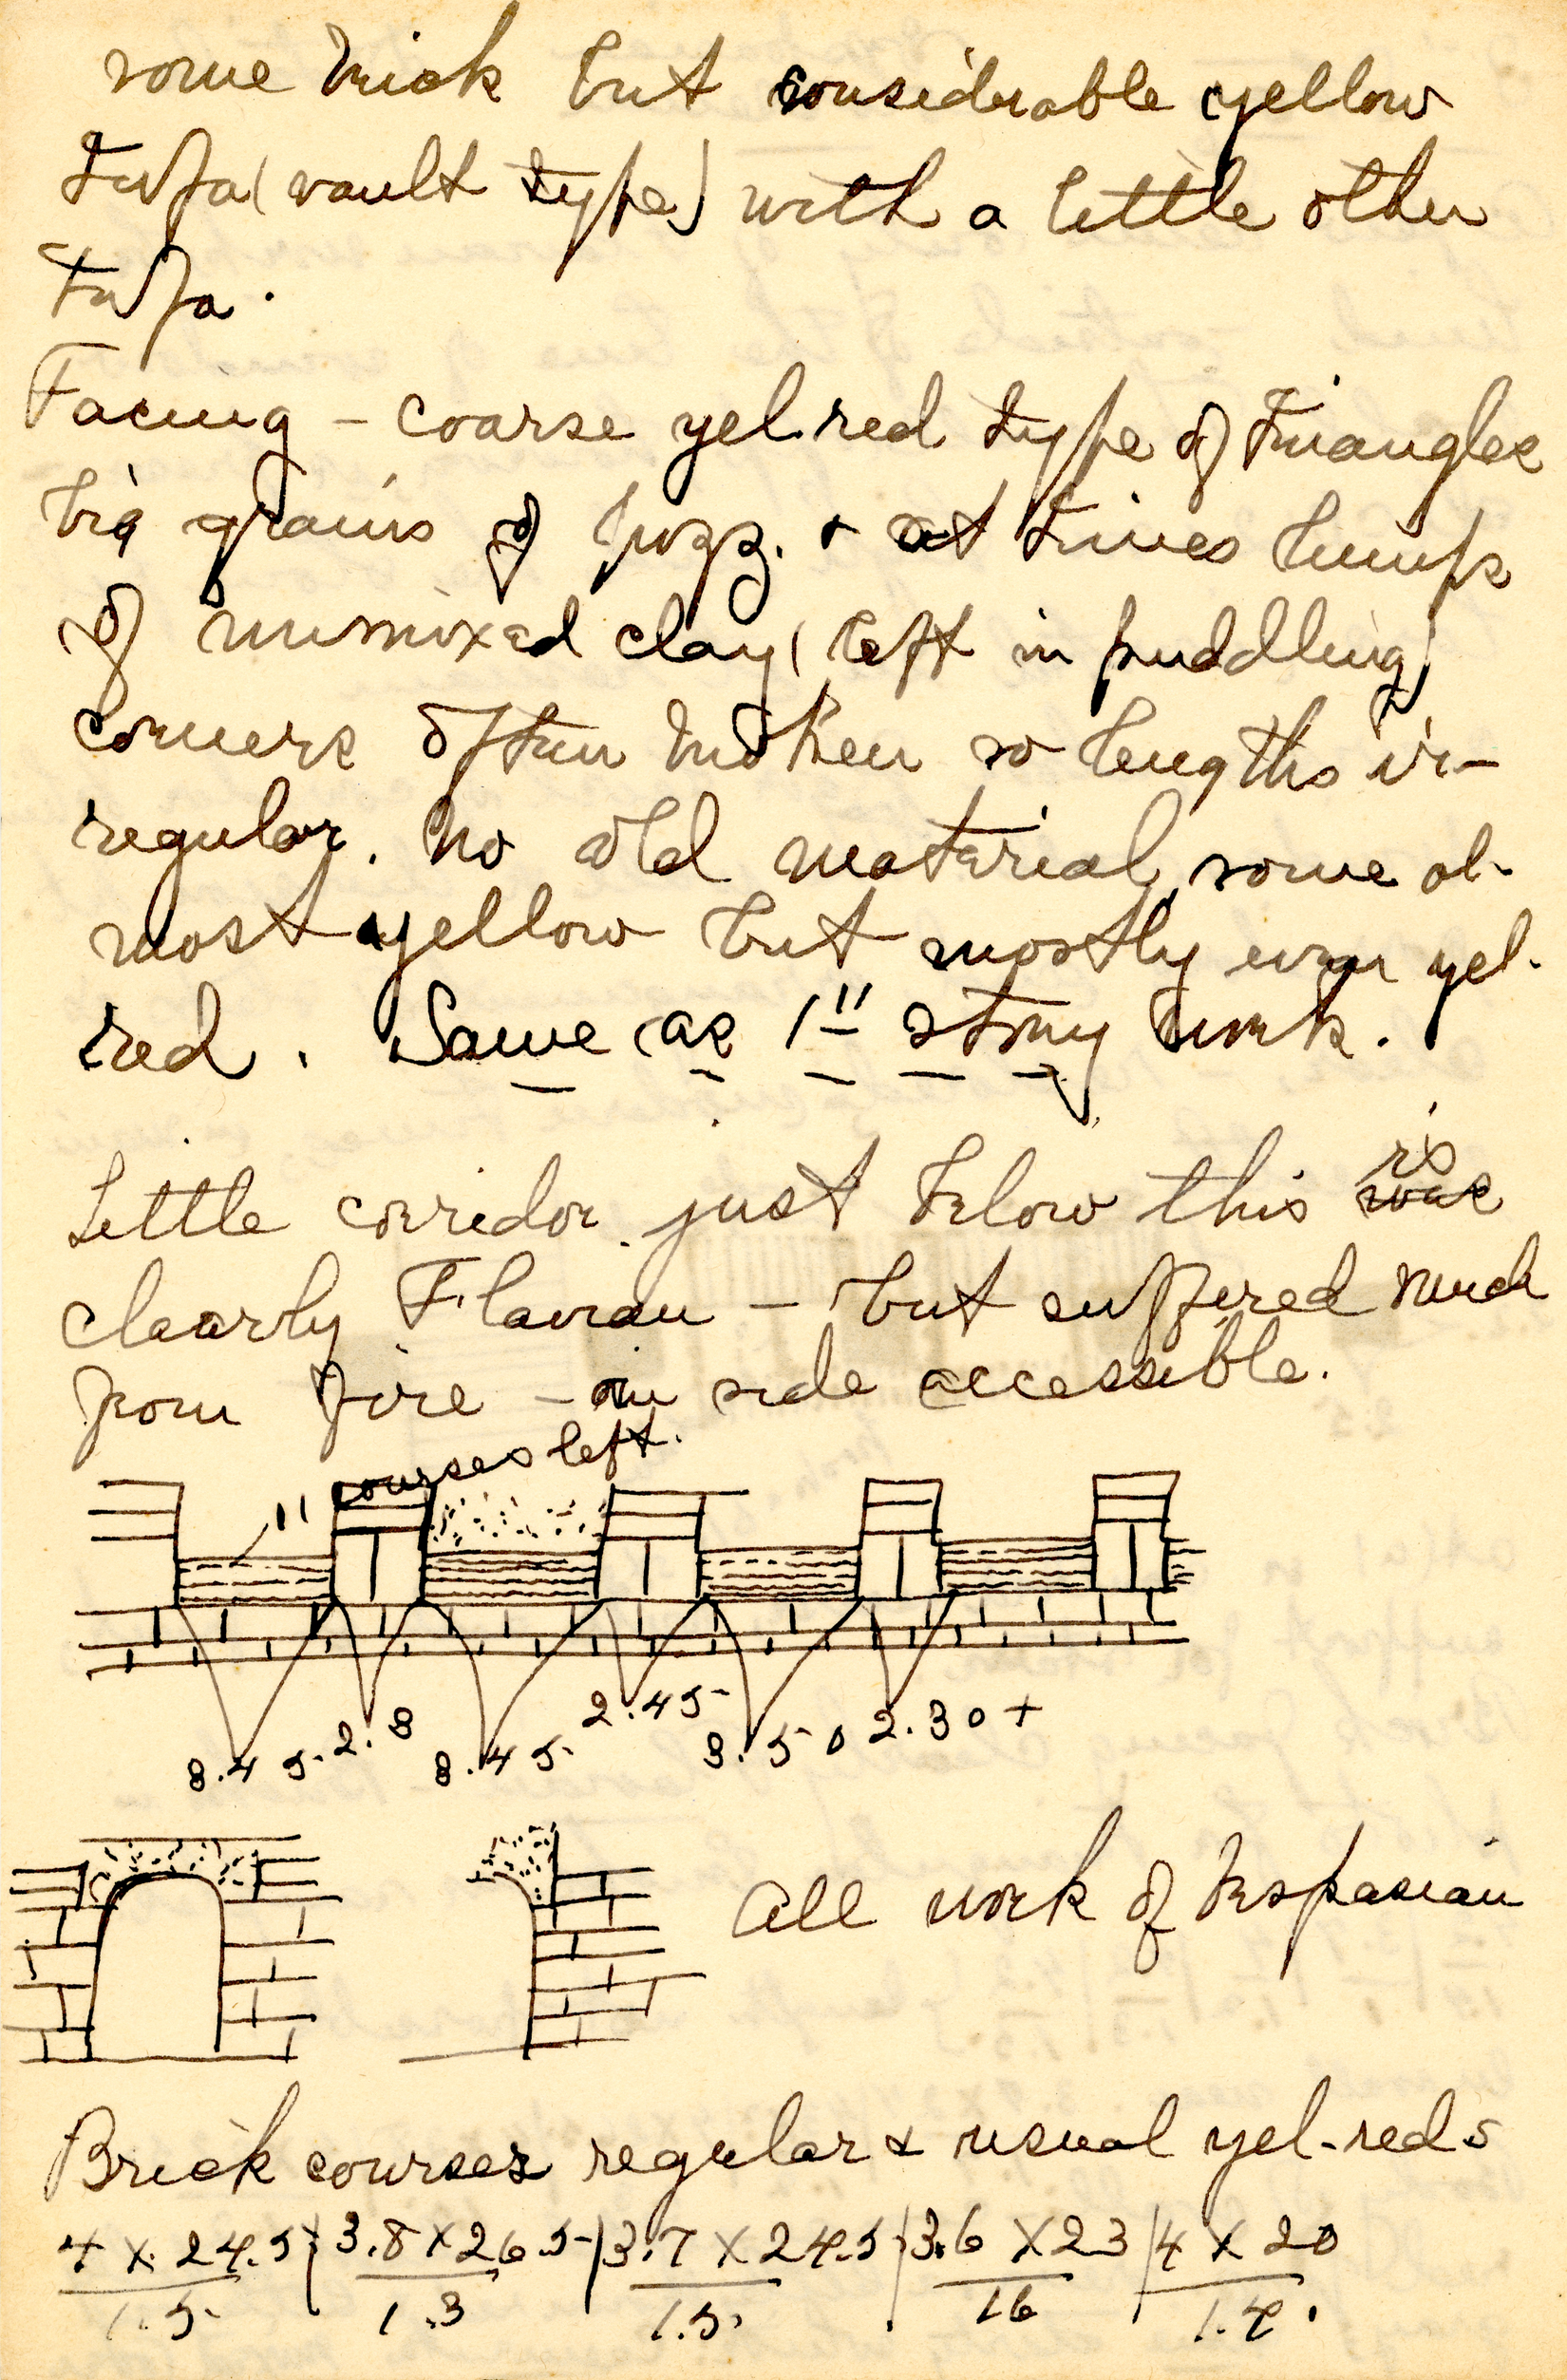 some brick but considerable yellow
tufa (vault type) with a little other
tufa.
Facing - coarse yel. red type of triangles
big grains of pozz. + at times lumps
of unmixed clay (left in puddling)
corners often broken so lengths ir-
regular. No old material, some al-
most yellow but mostly even yel.
red. Same as 1st story work.
Little corridor just below this was is
clearly Flavian - but suffered much
from fire - on side accessible.
11 courses left.
3.45 2.3 3.45 2.45 3.50 2.30+
All work of Vespasian
Brick courses regular + usual yel-reds
4 x 24.5 | 3.8 x 26.5 | 3.7 x 24.5 | 3.6 x 23 | 4 x 20
1.5 1.3 1.5 16 1.4.